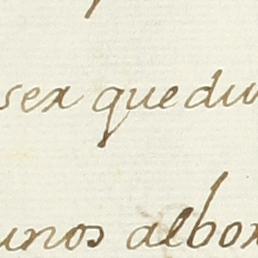 sex quedu
unos albor